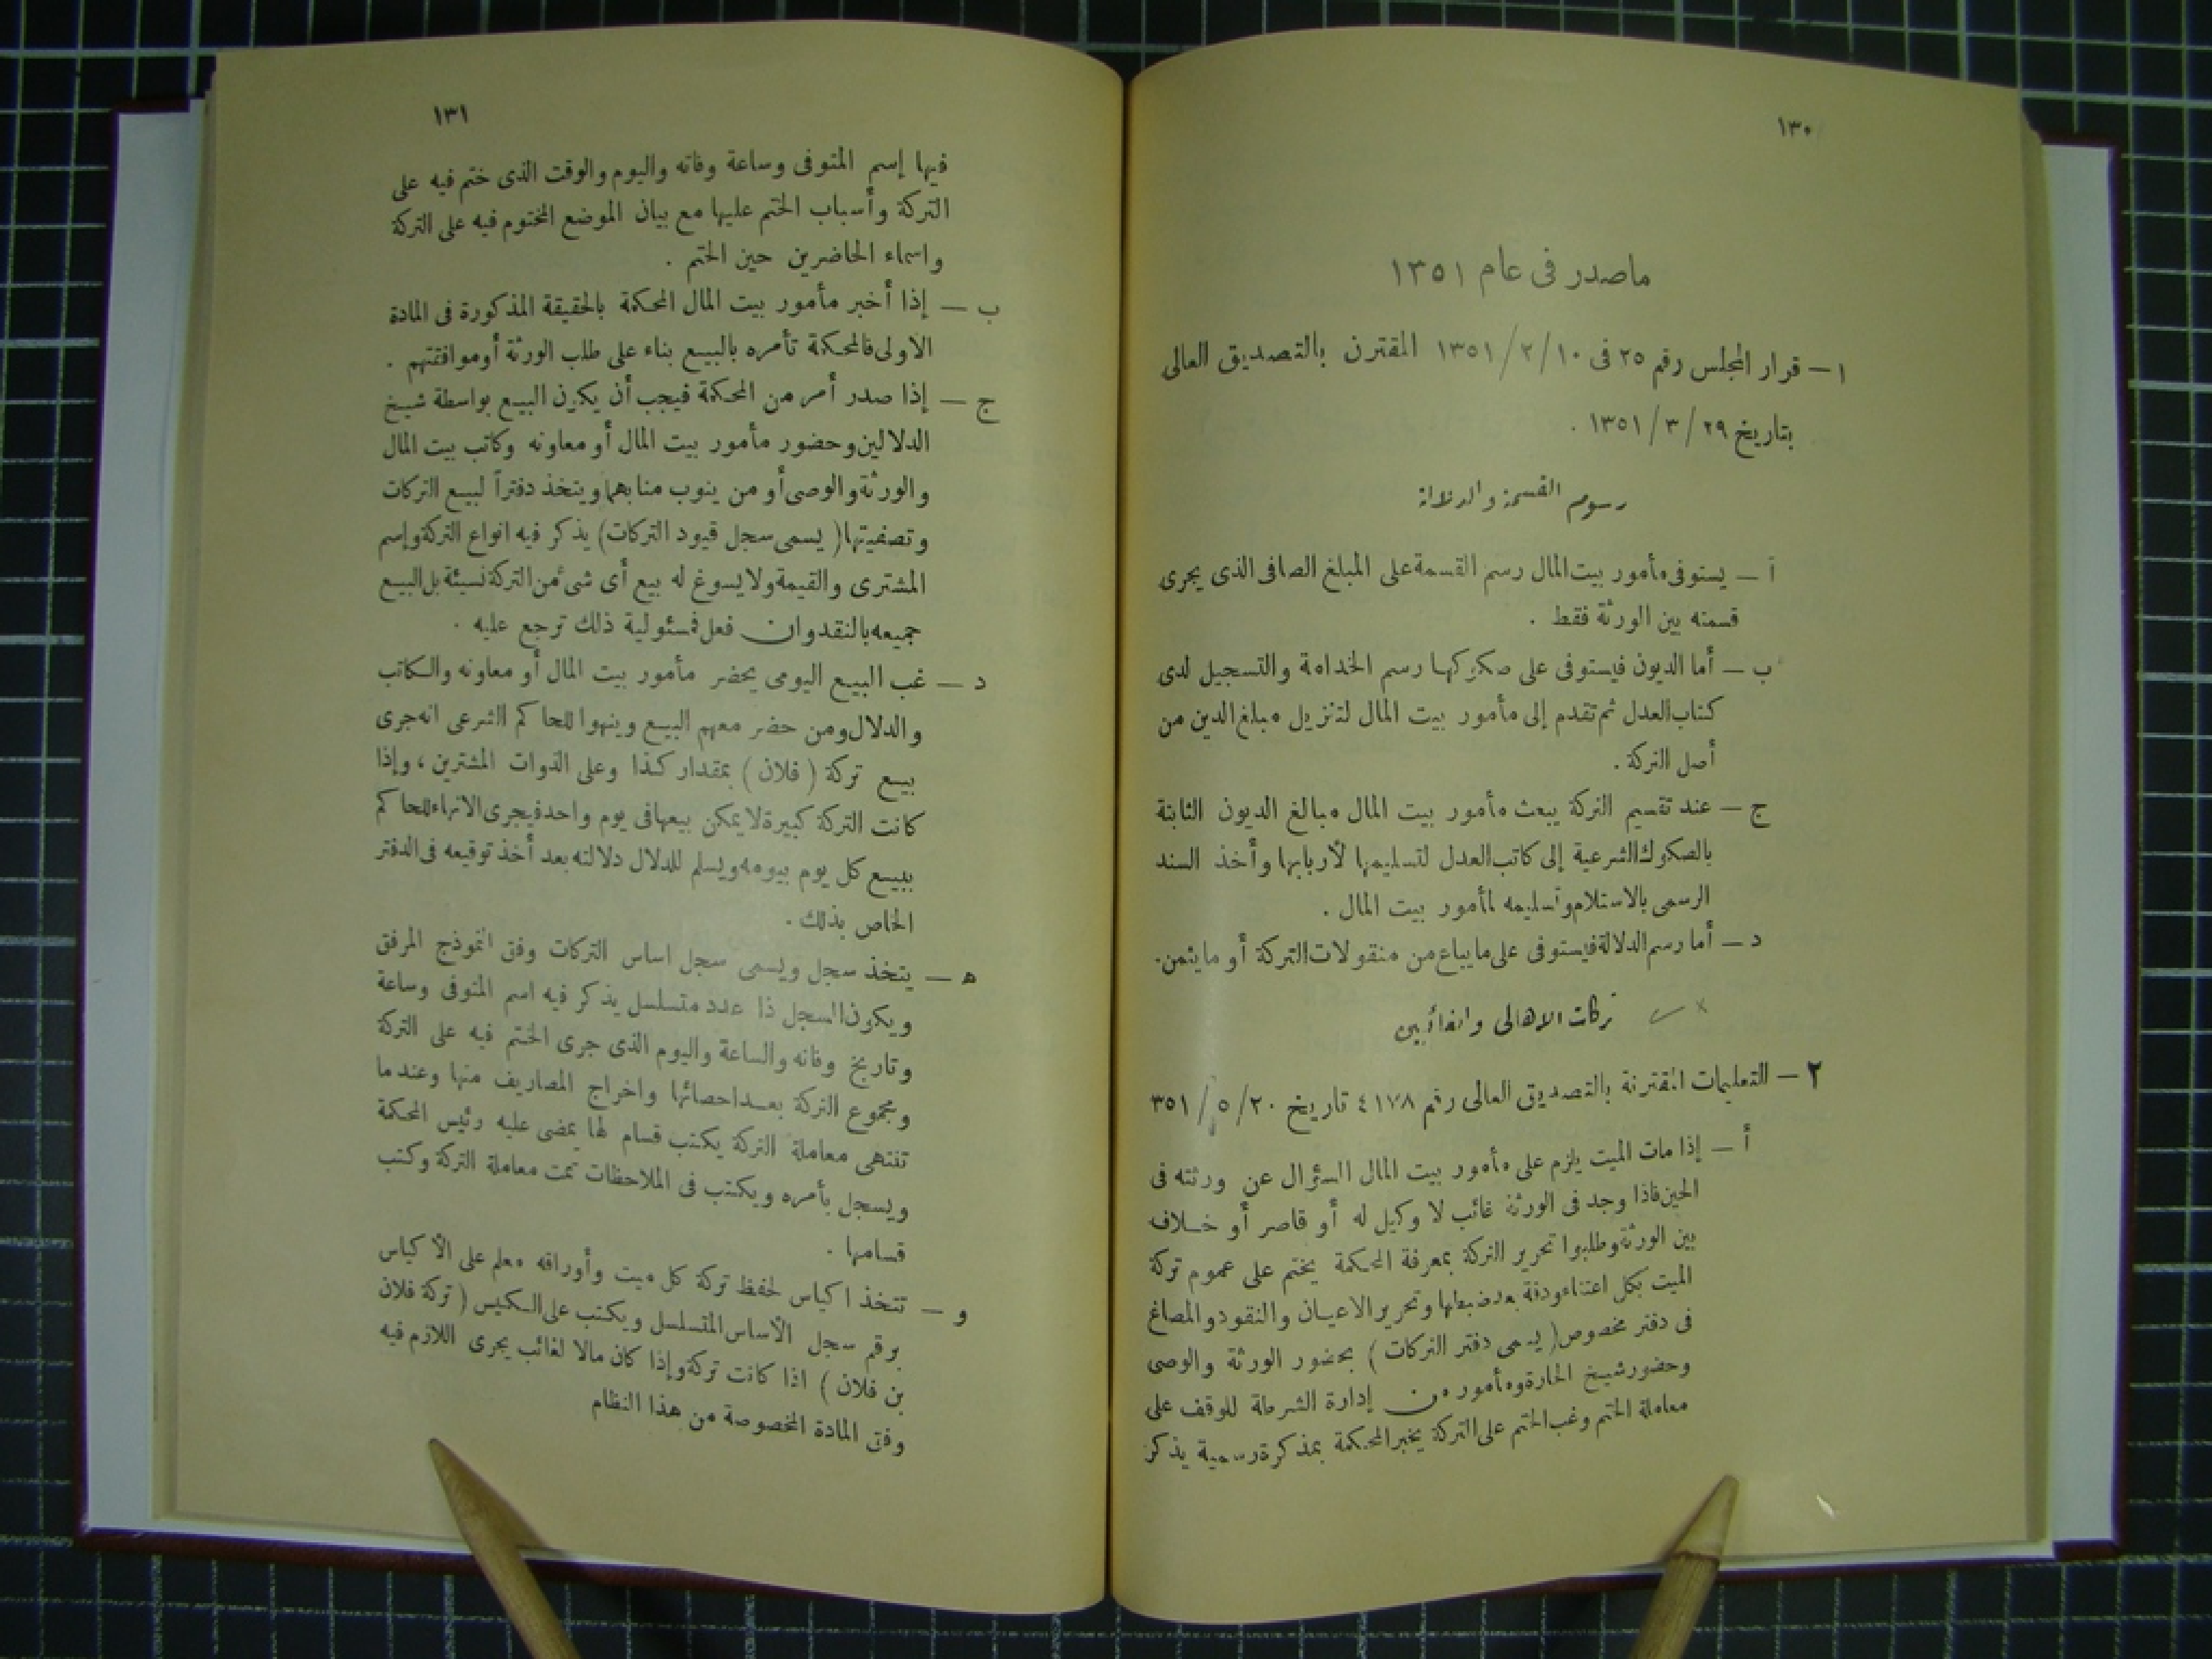 ١٣٠
ماصدر فى عام ١٣٥١
١ — قرار المجلس رقم ٢٥ فى ١٠/٢/١٣٥١ المقترن بالتصديق العالى
بتاريخ ٢٩/٣/١٣٥١ .
رسوم القسمة والدلالة
أ — يستوفى مأمور بيت المال رسم القسمة على المبلغ الصافى الذى يجرى
قسمته بين الورثة فقط .
ب — أما الديون فيستوفى على صكوكها رسم الخدامة والتسجيل لدى
كتاب العدل ثم تقدم إلى مأمور بيت المال لتنزيل مبلغ الدين من
أصل التركة .
ج — عند تقسيم التركة يبعث مأمور بيت المال مبالغ الديون الثابتة
بالصكوك الشرعية إلى كاتب العدل لتسليمها لأربابها وأخذ السند
الرسمى بالاستلام وتسليمه لمأمور بيت المال .
د — أما رسم الدلالة فيستوفى على ما يباع من منقولات التركة أو ما يثمن .
تركات الاهالى والغائبين
٢ — التعليمات المقترنة بالتصديق العالى رقم ٤١٧٨ تاريخ ٢٠/٥/٣٥١
أ — إذا مات الميت يلزم على مأمور بيت المال السؤال عن ورثته فى
الحين فاذا وجد فى الورثة غائب لا وكيل له أو قاصر أو خلاف
بين الورثة وطلبوا تحرير التركة بمعرفة المحكمة يختم على عموم تركة
الميت بكل اعتناء ودقة بعد ضبطها وتحرير الاعيان والنقود والمصاغ
فى دفتر مخصوص ( يسمى دفتر التركات ) بحضور الورثة والوصى
وحضور شيخ الحارة ومأمور من إدارة الشرطة للوقف على
معاملة الختم وغب الختم على التركة يخبر المحكمة بمذكرة رسمية يذكر
١٣١
فيها إسم المتوفى وساعة وفاته واليوم والوقت الذى ختم فيه على
التركة وأسباب الختم عليها مع بيان الموضع المختوم فيه على التركة
واسماء الحاضرين حين الختم .
ب — إذا أخبر مأمور بيت المال المحكمة بالحقيقة المذكورة فى المادة
الاولى فالمحكمة تأمره بالبيع بناء على طلب الورثة أو موافقتهم .
ج — إذا صدر أمر من المحكمة فيجب أن يكون البيع بواسطة شيخ
الدلالين وحضور مأمور بيت المال أو معاونه وكاتب بيت المال
والورثة والوصى أو من ينوب منابهما ويتخذ دفتراً لبيع التركات
وتصفيتها ( يسمى سجل قيود التركات ) يذكر فيه انواع التركة وإسم
المشترى والقيمة ولا يسوغ له بيع أى شىء من التركة نسيئة بل البيع
جميعه بالنقد وان فعل فمسئولية ذلك ترجع عليه .
د — غب البيع اليومى يحضر مأمور بيت المال أو معاونه والكاتب
والدلال ومن حضر معهم البيع وينهوا للحاكم الشرعى انه جرى
بيع تركة ( فلان ) بمقدار كذا وعلى الذوات المشترين ، وإذا
كانت التركة كبيرة لا يمكن بيعها فى يوم واحد فيجرى الانهاء للحاكم
ببيع كل يوم بيومه ويسلم للدلال دلالته بعد أخذ توقيعه فى الدفتر
الخاص بذلك .
ه — يتخذ سجل ويسمى سجل اساس التركات وفق النموذج المرفق
ويكون السجل ذا عدد متسلسل يذكر فيه اسم المتوفى وساعة
وتاريخ وفاته والساعة واليوم الذى جرى الختم فيه على التركة
ومجموع التركة بعد احصائها واخراج المصاريف منها وعندما
تنتهى معاملة التركة يكتب قسام لها يمضى عليه رئيس المحكمة
ويسجل بأمره ويكتب فى الملاحظات تمت معاملة التركة وكتب
قسامها .
و — تتخذ اكياس لحفظ تركة كل ميت وأوراقه معلم على الأكياس
برقم سجل الأساس المتسلسل ويكتب على الكيس ( تركة فلان
بن فلان ) اذا كانت تركة وإذا كان مالا لغائب يجرى اللازم فيه
وفق المادة المخصوصة من هذا النظام